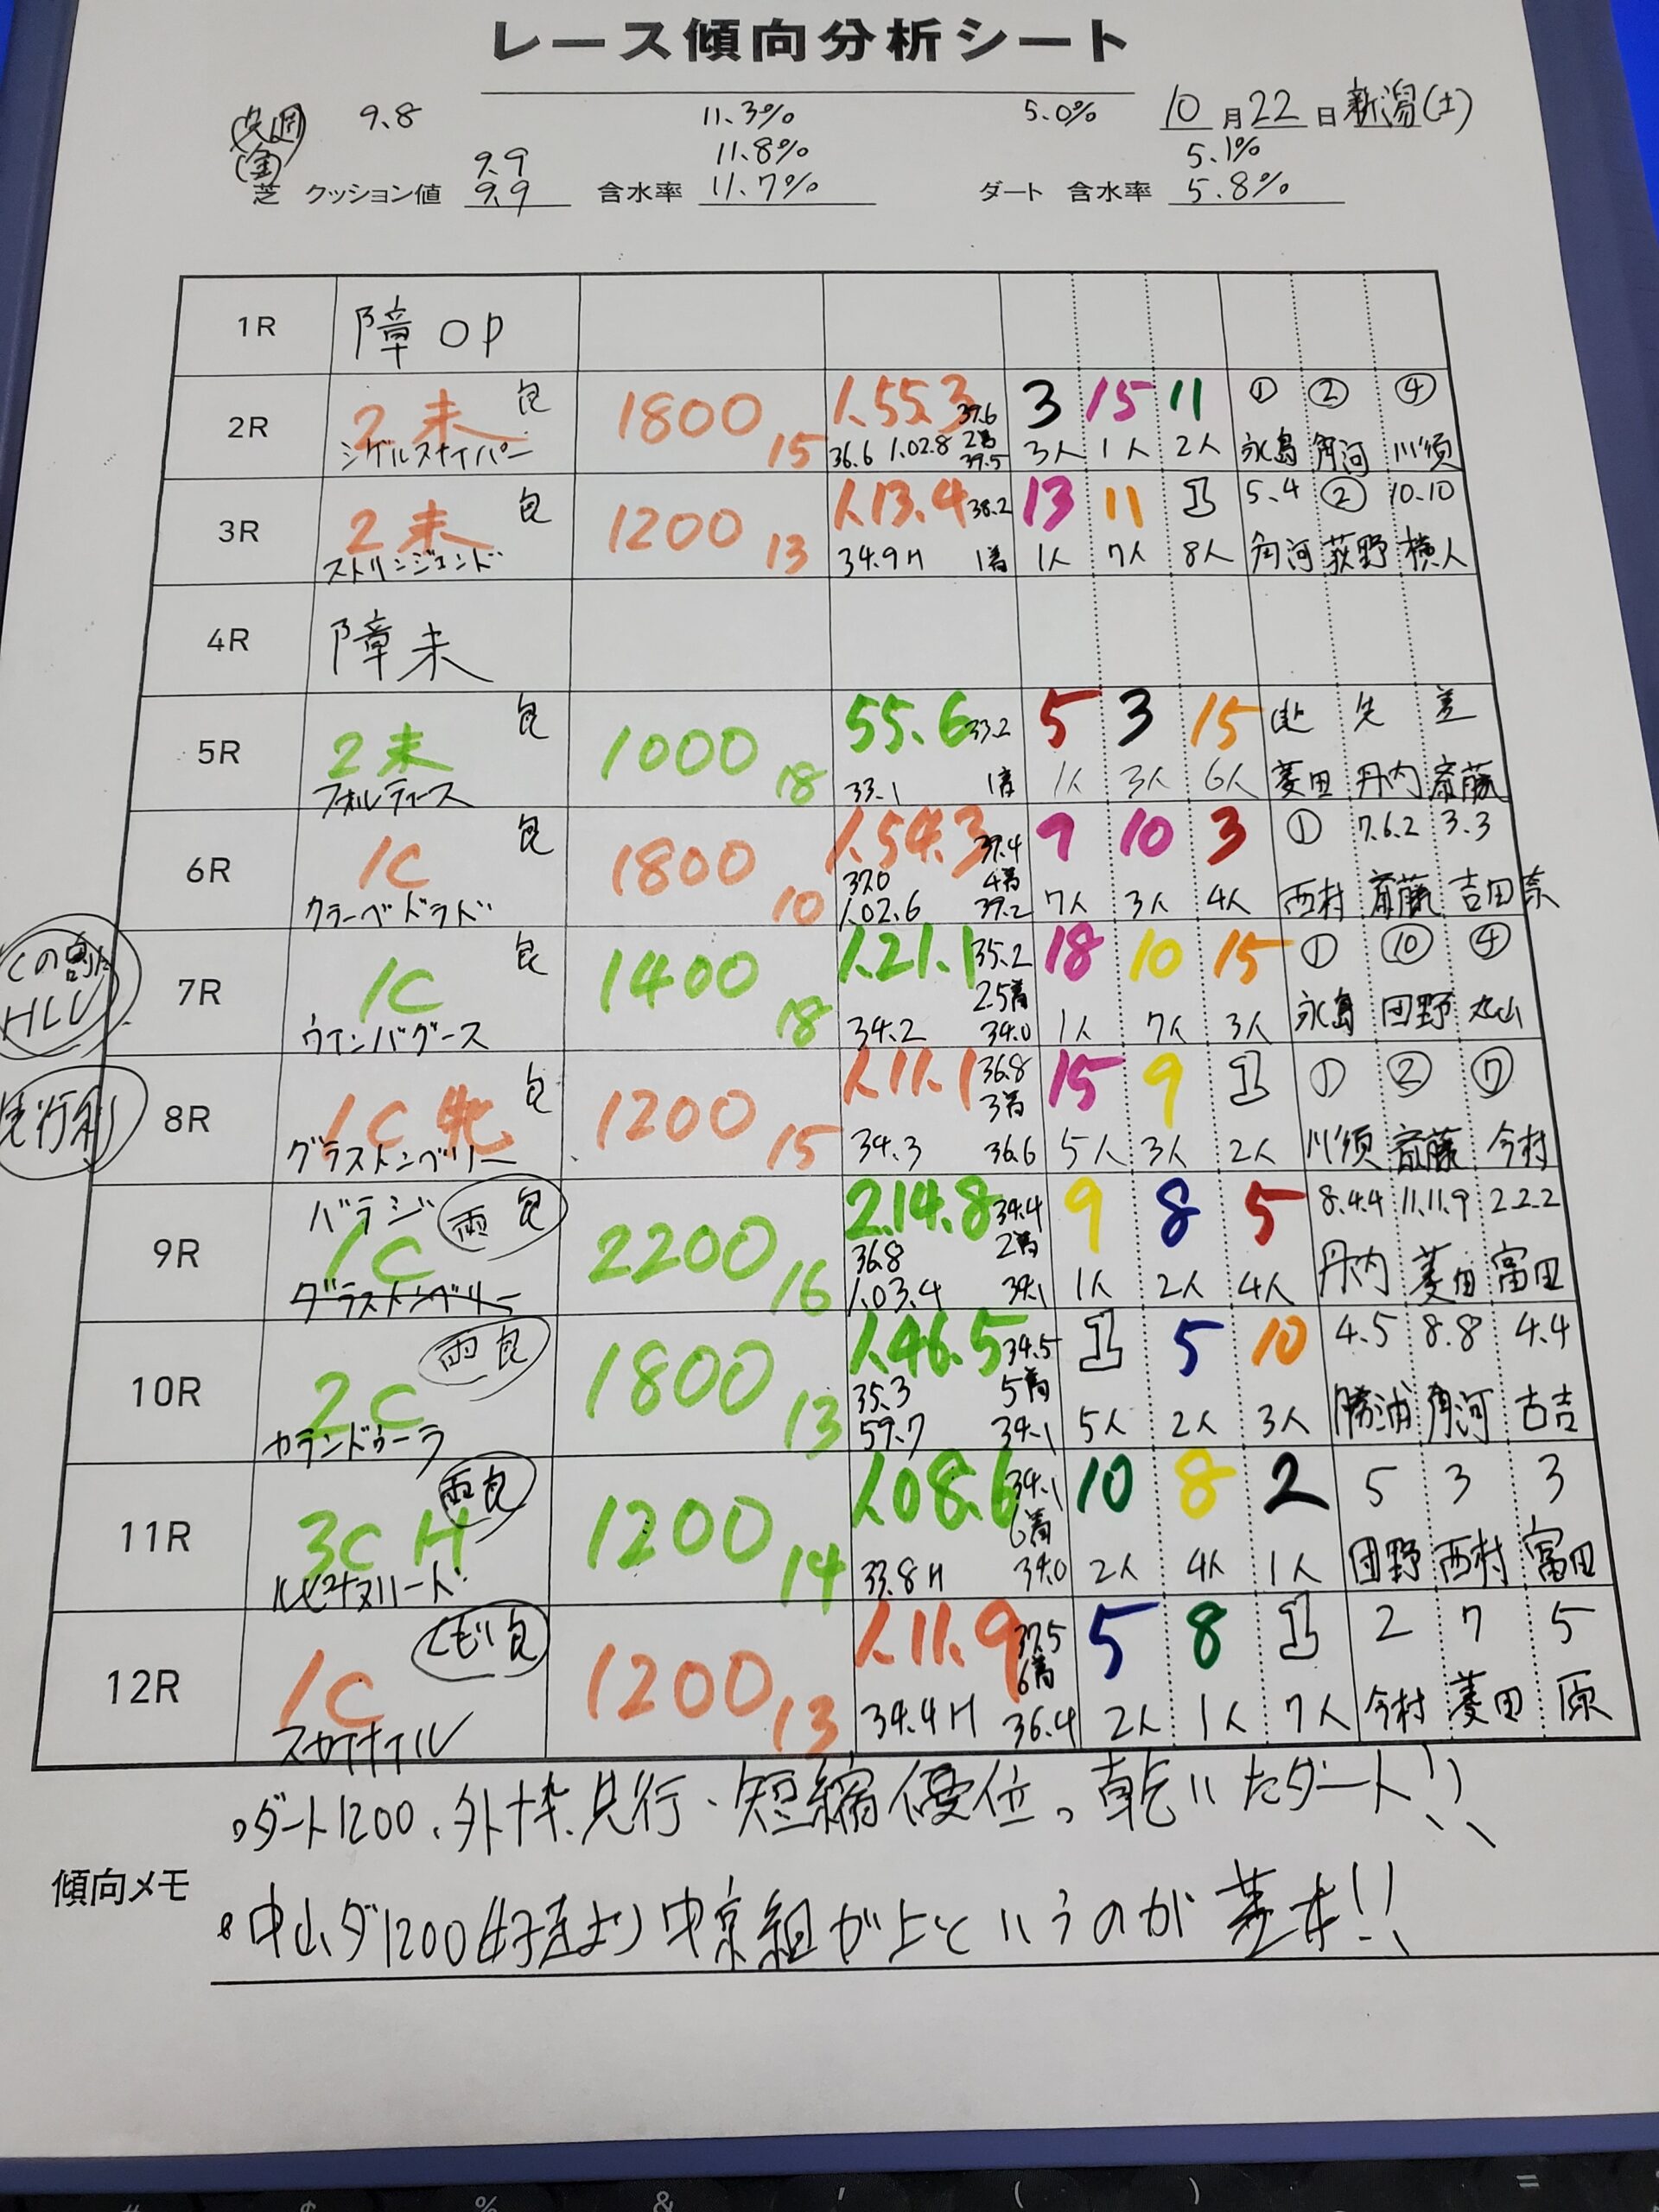 レース傾向分析シート
9.8 11.3% 5.0% 10月22日 新潟(土)
(金) 9.9 11.8% 5.1%
芝 クッション値 9.9 含水率 11.7% ダート 含水率 5.8%
1R 障OP
2R 2未 良 1800 15 1.55.3 37.6 3 15 11 ① ② ④
シゲルスナイパー 36.6 1.02.8 2着 39.5 3人 1人 2人 永島 角河 川須
3R 2未 良 1200 13 1.13.4 38.2 13 11 1 5.4 ② 10.10
ストリンジェンド 34.9H 1着 1人 7人 8人 角河 荻野 横人
4R 障未
5R 2未 良 1000 18 55.6 33.2 5 3 15 先 差
フォルティース 33.1 1着 1人 3人 6人 菱田 丹内 斎藤
6R 1C 良 1800 10 1.54.3 39.4 9 10 3 ① 7.6.2 3.3
クラーベドラド 37.0 4着 1.02.6 39.2 7人 3人 4人 西村 斎藤 吉田奈
HLU
7R 1C 良 1400 18 1.21.1 35.2 18 10 15 ① ⑩ ④
ウインバグース 34.2 2.5着 34.0 1人 7人 3人 永島 団野 丸山
先行利
8R 1C牝 良 1200 15 1.11.1 36.8 15 9 1 ① ② ⑦
グラストンベリー 34.3 3着 36.6 5人 3人 2人 川須 斎藤 今村
9R バラジ 1C 雨良 2200 16 2.14.8 34.4 9 8 5 8.4.4 11.11.9 2.2.2
グラストンベリー 36.8 2着 1.03.4 34.1 1人 2人 4人 丹内 菱田 富田
10R 2C 雨良 1800 13 1.46.5 34.5 1 5 10 4.5 8.8 4.4
カランドゥーラ 35.3 5着 59.7 34.1 5人 2人 3人 勝浦 角河 古吉
11R 3C H 雨良 1200 14 1.08.6 34.1 10 8 2 5 3 3
ルピナスリード 33.8H 6着 34.0 2人 4人 1人 団野 西村 富田
12R 1C くもり良 1200 13 1.11.9 37.5 5 8 1 2 7 5
スカイナイル 34.4H 6着 36.4 2人 1人 7人 今村 菱田 原
・ダート1200、外枠、先行、短縮優位。乾いたダート!!
傾向メモ
・中山ダ1200好走より中京組が上というのが基本!!